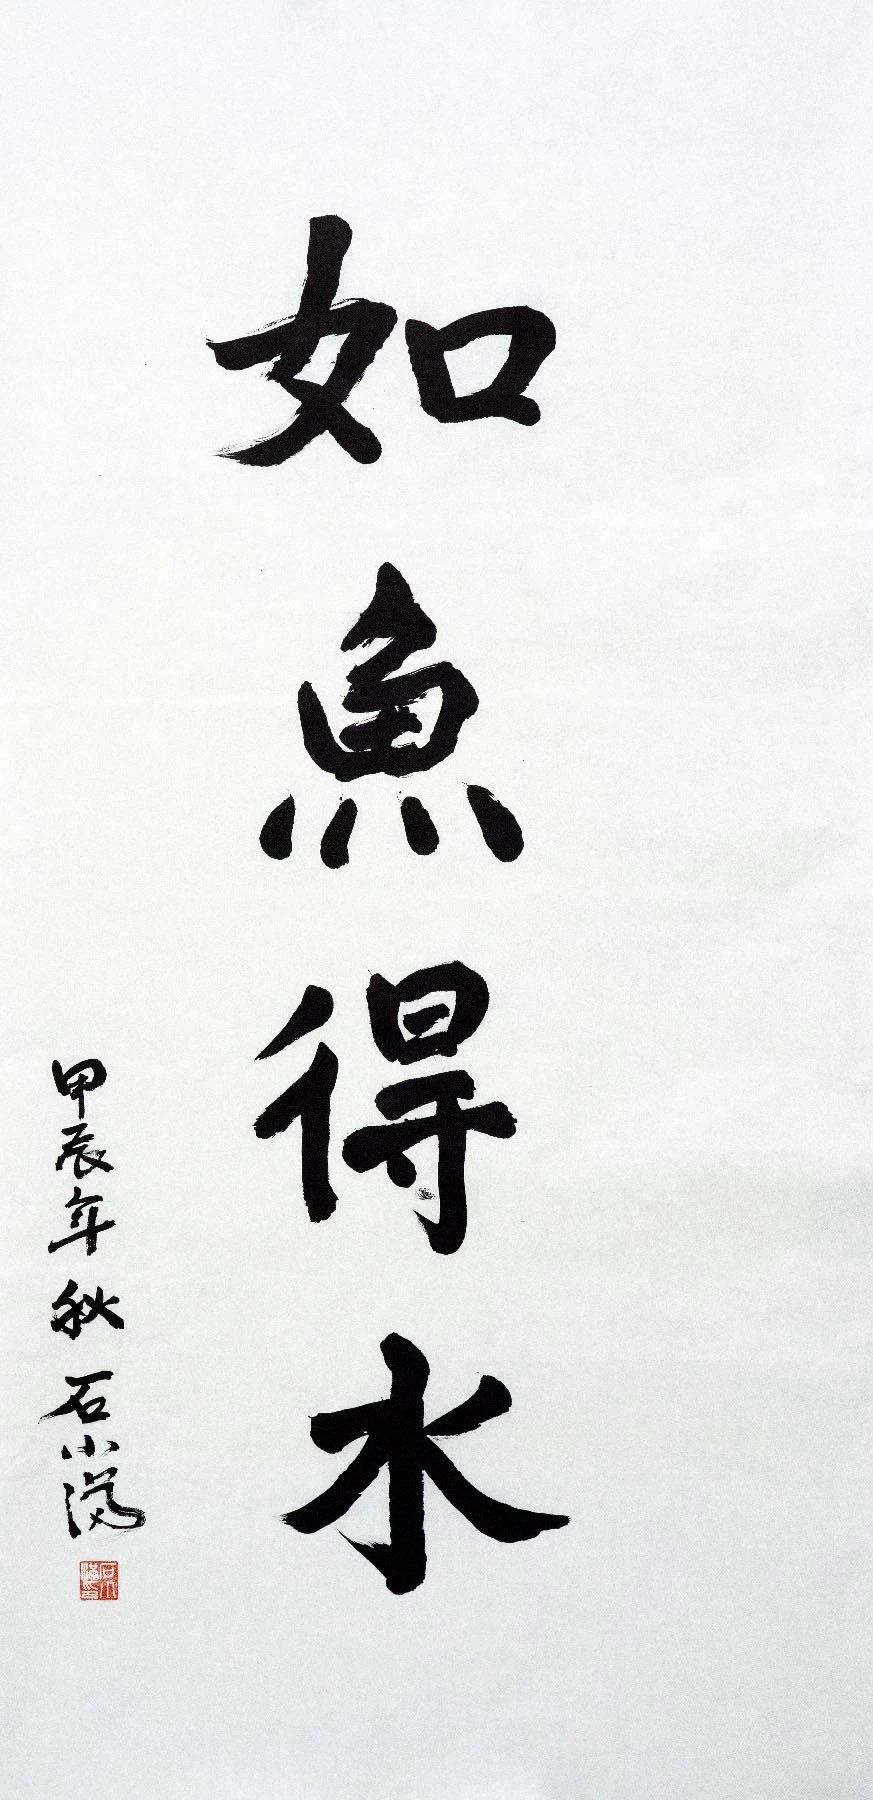 如魚得水
甲辰年秋 石小满